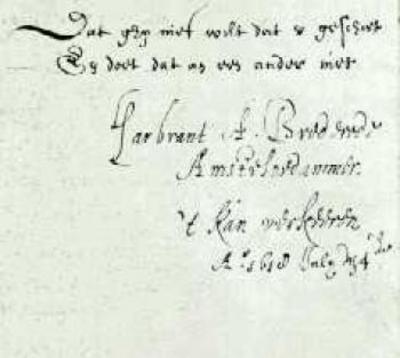 Dat ghy niet wilt dat u geschiet
En doet dat an een ander niet
Garbrant A. Brederode
Amstelredammer.
't Kan verkeeren
A° 1618 July